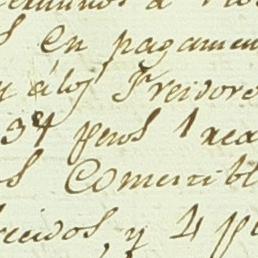 en pagamen
y á los Freidore
34 pesos 1 rea
os Comestibl
ecidos, y 4 pe